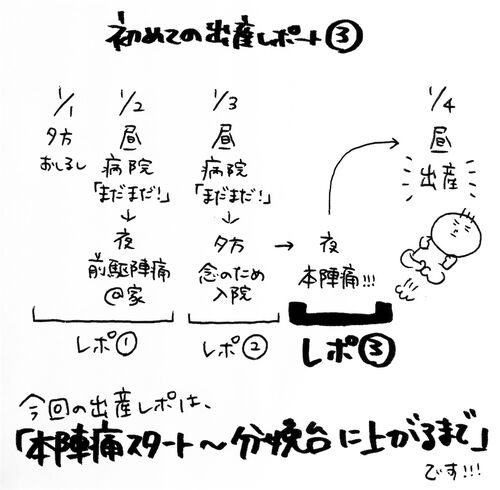 初めての出産レポート③
1/1
夕方
おしるし
1/2
昼
病院
「まだまだ!」
↓
夜
前駆陣痛
@家
レポ①
1/3
昼
病院
「まだまだ!」
↓
夕方
念のため
入院
レポ②
→
夜
本陣痛!!!
レポ③
1/4
昼
出産
今回の出産レポは、
「本陣痛スタート〜分娩台に上がるまで」
です!!!